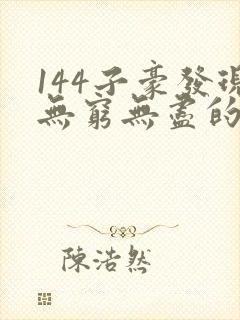 144子豪發現
無窮無盡的
陳浩然